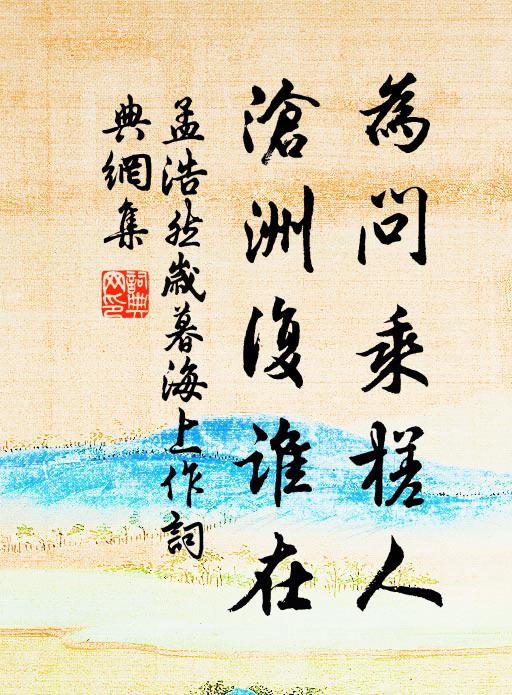 為問乘槎人
滄洲復誰在
孟浩然歲暮海上作詞
典網集
詞典網印